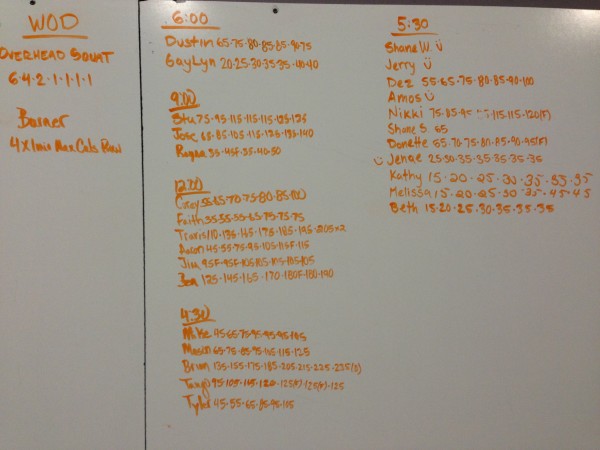 WOD
OVERHEAD SQUAT
6·4·2·1·1·1·1
Burner
4 x 1 min Max Cals Row
6:00
Dustin 65·75·80·85·85·90·75
GayLyn 20·25·30·35·35·40·40
9:00
Stu 75·95·115·115·115·125·125
Jose 65·85·105·115·125·135·140
Rayna 35·45F·35·40·50
12:00
Corey 55·65·70·75·80·85·100
Faith 35·55·55·65·75·75·75
Travis 110·135·145·175·185·195·205x2
Aaron 45·55·75·95·105·115F·115
Jim 95F·95F·105·105·105·105·105
Ben 125·145·165·170·180F·180·190
4:30
Mike 45·65·75·95·95·95·105
Mason 65·75·85·95·115·115·125
Brian 135·155·175·185·205·215·225·235(F)
Tango 95·105·115·120·125(F)·125(F)·125
Tyler 45·55·65·85·95·105
5:30
Shane W. ü
Jerry ü
Dez 55·65·75·80·85·90·100
Amos ü
Nikki 75·85·95 115·115·120(F)
Shane S. 65
Danette 65·70·75·80·85·90·95(F)
ü Jenae 25·30·35·35·35·35·35
Kathy 15·20·25·30·35·35·35
Melissa 15·20·25·30·35·45·45
Beth 15·20·25·30·35·35·35